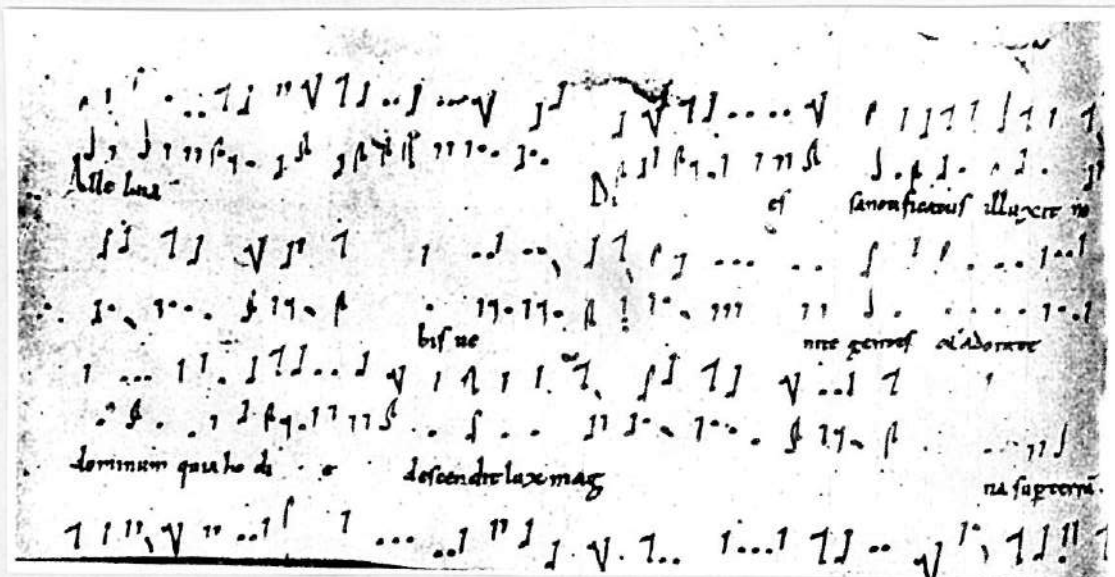 Alleluia Di es sanctificatus illuxit no
bis ue nite gentes et adorate
dominum quia ho di e descendit lux mag na super terrã.